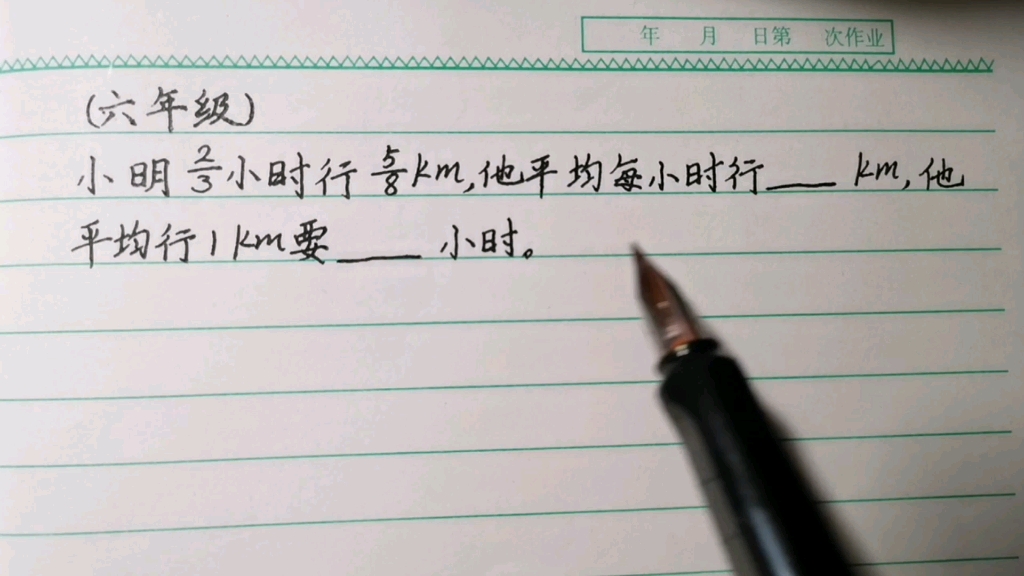 年 月 日第 次作业
(六年级)
小明2/3小时行5/8km,他平均每小时行___ km,他
平均行1km要___ 小时。